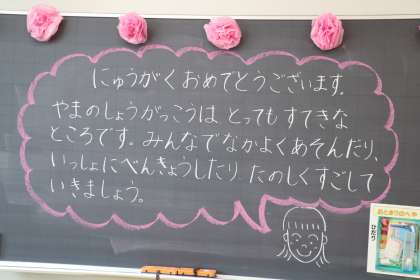 にゅうがくおめでとうございます.
やまのしょうがっこうは、とってもすてきな
ところです。みんなでなかよくあそんだり、
いっしょにべんきょうしたり、たのしくすごして
いきましょう。
ひだり